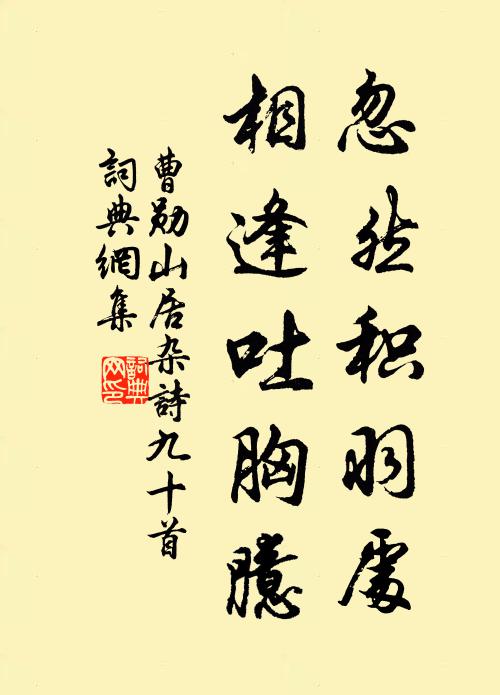 忽然积羽處
相逢吐胸臆
曹勋山居杂詩九十首
詞典網集
詞典網印